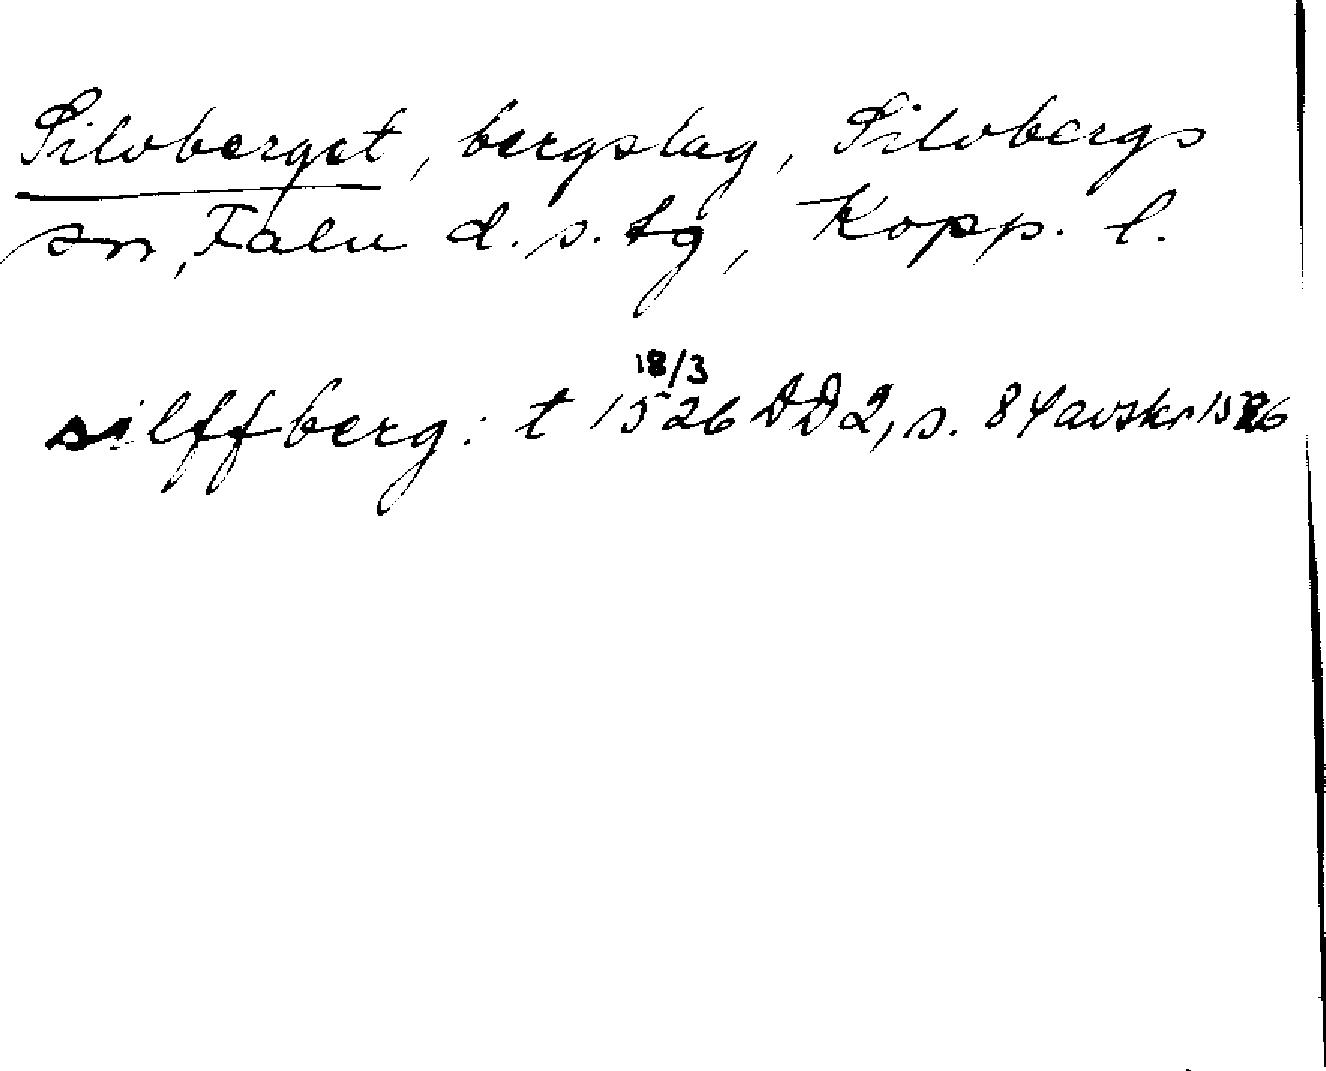 Silvberget, bergslag, Silvbergs
sn, Falu d.s. tg, Kopp. l.
18/3
silffberg: t 1526 DD2, s. 84 avskr 1526